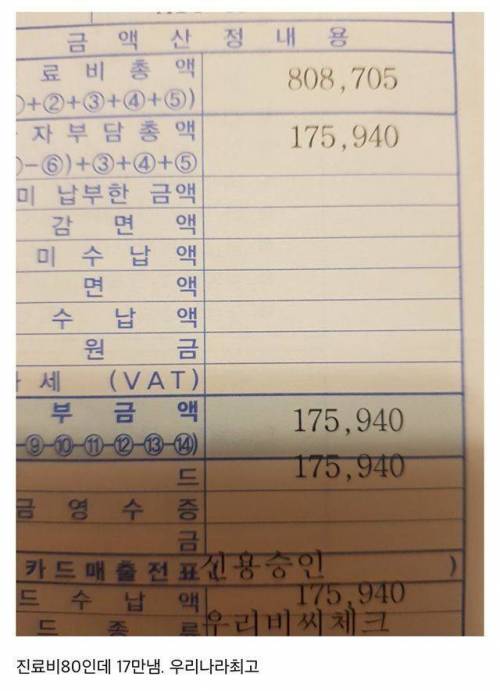 금 액 산 정 내 용
료 비 총 액 808,705
+②+③+④+⑤)
자 부 담 총 액 175,940
-⑥)+③+④+⑤
미 납부한 금액
감 면 액
미 수 납 액
면 액
수 납 액
원 금
세 (VAT)
부 금 액 175,940
⑨-⑩-⑪-⑫-⑬-⑭)
드 175,940
금 영 수 증
금
카드매출전표( 신용승인 )
드 수 납 액 175,940
드 종 류 우리비씨체크
진료비80인데 17만냄. 우리나라최고